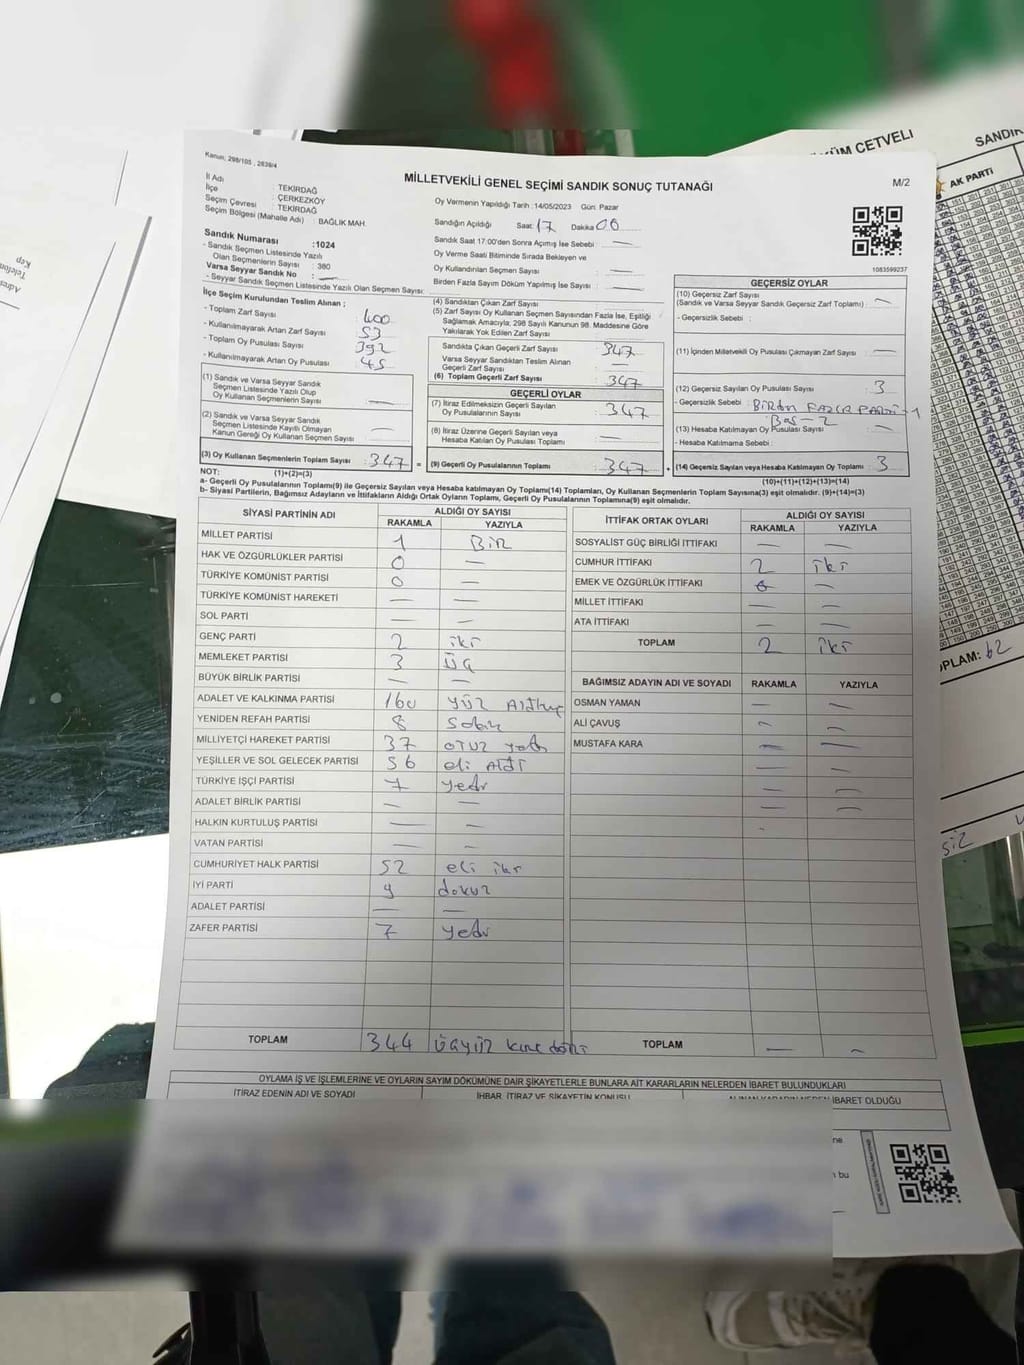 ÜM CETVELİ
SANDIK
AK PARTİ
Kanun; 298/105 , 2839/4
MİLLETVEKİLİ GENEL SEÇİMİ SANDIK SONUÇ TUTANAĞI
M/2
İl Adı : TEKİRDAĞ
İlçe : ÇERKEZKÖY
Seçim Çevresi : TEKİRDAĞ
Seçim Bölgesi (Mahalle Adı) : BAĞLIK MAH.
Oy Vermenin Yapıldığı Tarih :14/05/2023 Gün: Pazar
Sandığın Açıldığı Saat: 17 Dakika 00
Sandık Saat 17:00'den Sonra Açımış İse Sebebi : —
Oy Verme Saati Bitiminde Sırada Bekleyen ve
Oy Kullandırılan Seçmen Sayısı : —
Birden Fazla Sayım Döküm Yapılmış İse Sayısı : —
1083599237
Sandık Numarası :1024
- Sandık Seçmen Listesinde Yazılı
Olan Seçmenlerin Sayısı : 380
Varsa Seyyar Sandık No : —
- Seyyar Sandık Seçmen Listesinde Yazılı Olan Seçmen Sayısı:
İlçe Seçim Kurulundan Teslim Alınan ;
- Toplam Zarf Sayısı : 400
- Kullanılmayarak Artan Zarf Sayısı : 53
- Toplam Oy Pusulası Sayısı : 392
- Kullanılmayarak Artan Oy Pusulası : 45
(1) Sandık ve Varsa Seyyar Sandık
Seçmen Listesinde Yazılı Olup
Oy Kullanan Seçmenlerin Sayısı : —
(2) Sandık ve Varsa Seyyar Sandık
Seçmen Listesinde Kayıtlı Olmayan
Kanun Gereği Oy Kullanan Seçmen Sayısı : —
(3) Oy Kullanan Seçmenlerin Toplam Sayısı : 347 =
(1)+(2)=(3)
(4) Sandıktan Çıkan Zarf Sayısı
(5) Zarf Sayısı Oy Kullanan Seçmen Sayısından Fazla İse, Eşitliği
Sağlamak Amacıyla, 298 Sayılı Kanunun 98. Maddesine Göre
Yakılarak Yok Edilen Zarf Sayısı
Sandıkta Çıkan Geçerli Zarf Sayısı : 347
Varsa Seyyar Sandıktan Teslim Alınan
Geçerli Zarf Sayısı :
(6) Toplam Geçerli Zarf Sayısı : 347
GEÇERLİ OYLAR
(7) İtiraz Edilmeksizin Geçerli Sayılan
Oy Pusulalarının Sayısı : 347
(8) İtiraz Üzerine Geçerli Sayılan veya
Hesaba Katılan Oy Pusulası Toplamı : —
(9) Geçerli Oy Pusulalarının Toplamı : 347 +
GEÇERSİZ OYLAR
(10) Geçersiz Zarf Sayısı
(Sandık ve Varsa Seyyar Sandık Geçersiz Zarf Toplamı) : —
- Geçersizlik Sebebi :
(11) İçinden Milletvekili Oy Pusulası Çıkmayan Zarf Sayısı : —
(12) Geçersiz Sayılan Oy Pusulası Sayısı : 3
- Geçersizlik Sebebi : BİRDEN FAZLA PARTİ - 1
BOŞ - 2
(13) Hesaba Katılmayan Oy Pusulası Sayısı : —
- Hesaba Katılmama Sebebi :
(14) Geçersiz Sayılan veya Hesaba Katılmayan Oy Toplamı : 3
(10)+(11)+(12)+(13)=(14)
NOT:
a- Geçerli Oy Pusulalarının Toplamı(9) ile Geçersiz Sayılan veya Hesaba katılmayan Oy Toplamı(14) Toplamları, Oy Kullanan Seçmenlerin Toplam Sayısına(3) eşit olmalıdır. (9)+(14)=(3)
b- Siyasi Partilerin, Bağımsız Adayların ve İttifakların Aldığı Ortak Oyların Toplamı, Geçerli Oy Pusulalarının Toplamına(9) eşit olmalıdır.
SİYASİ PARTİNİN ADI ALDIĞI OY SAYISI
RAKAMLA YAZIYLA
MİLLET PARTİSİ 1 BİR
HAK VE ÖZGÜRLÜKLER PARTİSİ 0 —
TÜRKİYE KOMÜNİST PARTİSİ 0 —
TÜRKİYE KOMÜNİST HAREKETİ — —
SOL PARTİ — —
GENÇ PARTİ 2 iki
MEMLEKET PARTİSİ 3 Üç
BÜYÜK BİRLİK PARTİSİ — —
ADALET VE KALKINMA PARTİSİ 160 yüz
YENİDEN REFAH PARTİSİ 8 sekiz
MİLLİYETÇİ HAREKET PARTİSİ 37 otuz yedi
YEŞİLLER VE SOL GELECEK PARTİSİ 56 eli Altı
TÜRKİYE İŞÇİ PARTİSİ 7 yedi
ADALET BİRLİK PARTİSİ — —
HALKIN KURTULUŞ PARTİSİ — —
VATAN PARTİSİ — —
CUMHURİYET HALK PARTİSİ 52 eli iki
İYİ PARTİ 9 dokuz
ADALET PARTİSİ — —
ZAFER PARTİSİ 7 yedi
TOPLAM 344 üçyüz kırk dört
İTTİFAK ORTAK OYLARI ALDIĞI OY SAYISI
RAKAMLA YAZIYLA
SOSYALİST GÜÇ BİRLİĞİ İTTİFAKI — —
CUMHUR İTTİFAKI 2 iki
EMEK VE ÖZGÜRLÜK İTTİFAKI 0 —
MİLLET İTTİFAKI — —
ATA İTTİFAKI — —
TOPLAM 2 iki
BAĞIMSIZ ADAYIN ADI VE SOYADI RAKAMLA YAZIYLA
OSMAN YAMAN — —
ALİ ÇAVUŞ — —
MUSTAFA KARA — —
TOPLAM — —
OPLAM: 62
OYLAMA İŞ VE İŞLEMLERİNE VE OYLARIN SAYIM DÖKÜMÜNE DAİR ŞİKAYETLERLE BUNLARA AİT KARARLARIN NELERDEN İBARET BULUNDUKLARI
İTİRAZ EDENİN ADI VE SOYADI İHBAR, İTİRAZ VE ŞİKAYETİN KONUSU ALINAN KARARIN NEDEN İBARET OLDUĞU